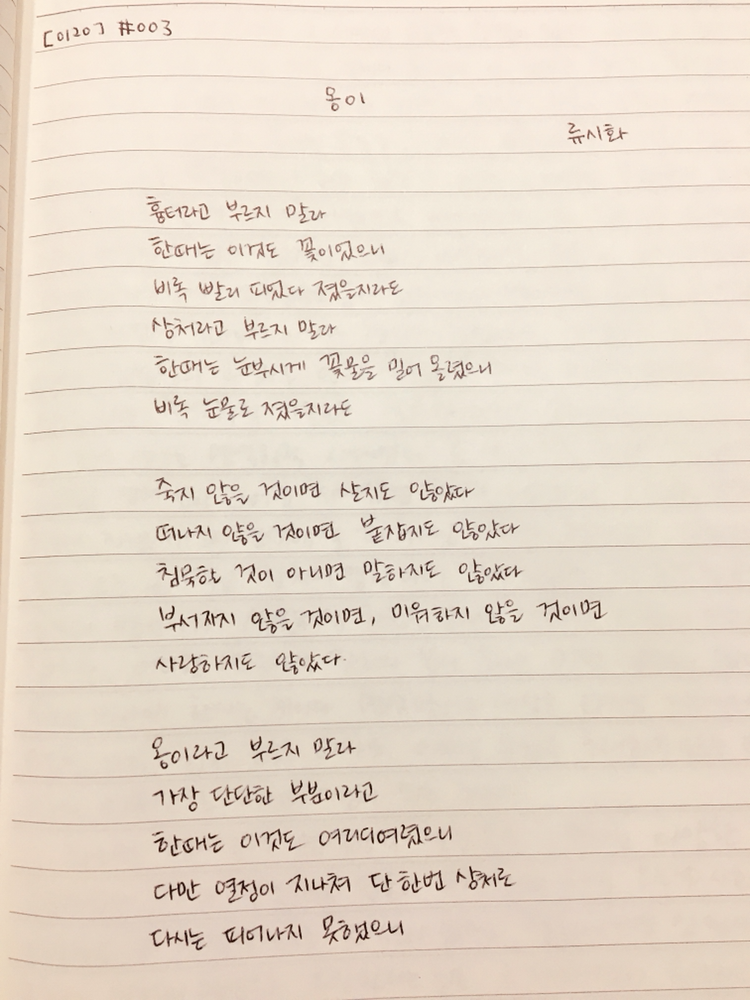 [0120] #003
옹이
류시화
흉터라고 부르지 말라
한때는 이것도 꽃이었으니
비록 빨리 피었다 졌을지라도
상처라고 부르지 말라
한때는 눈부시게 꽃물을 밀어 올렸으니
비록 눈물로 졌을지라도
죽지 않을 것이면 살지도 않았다
떠나지 않을 것이면 붙잡지도 않았다
침묵할 것이 아니면 말하지도 않았다
부서지지 않을 것이면, 미워하지 않을 것이면
사랑하지도 않았다.
옹이라고 부르지 말라
가장 단단한 부분이라고
한때는 이것도 여리디여렸으니
다만 열정이 지나쳐 단 한번 상처로
다시는 피어나지 못했으니